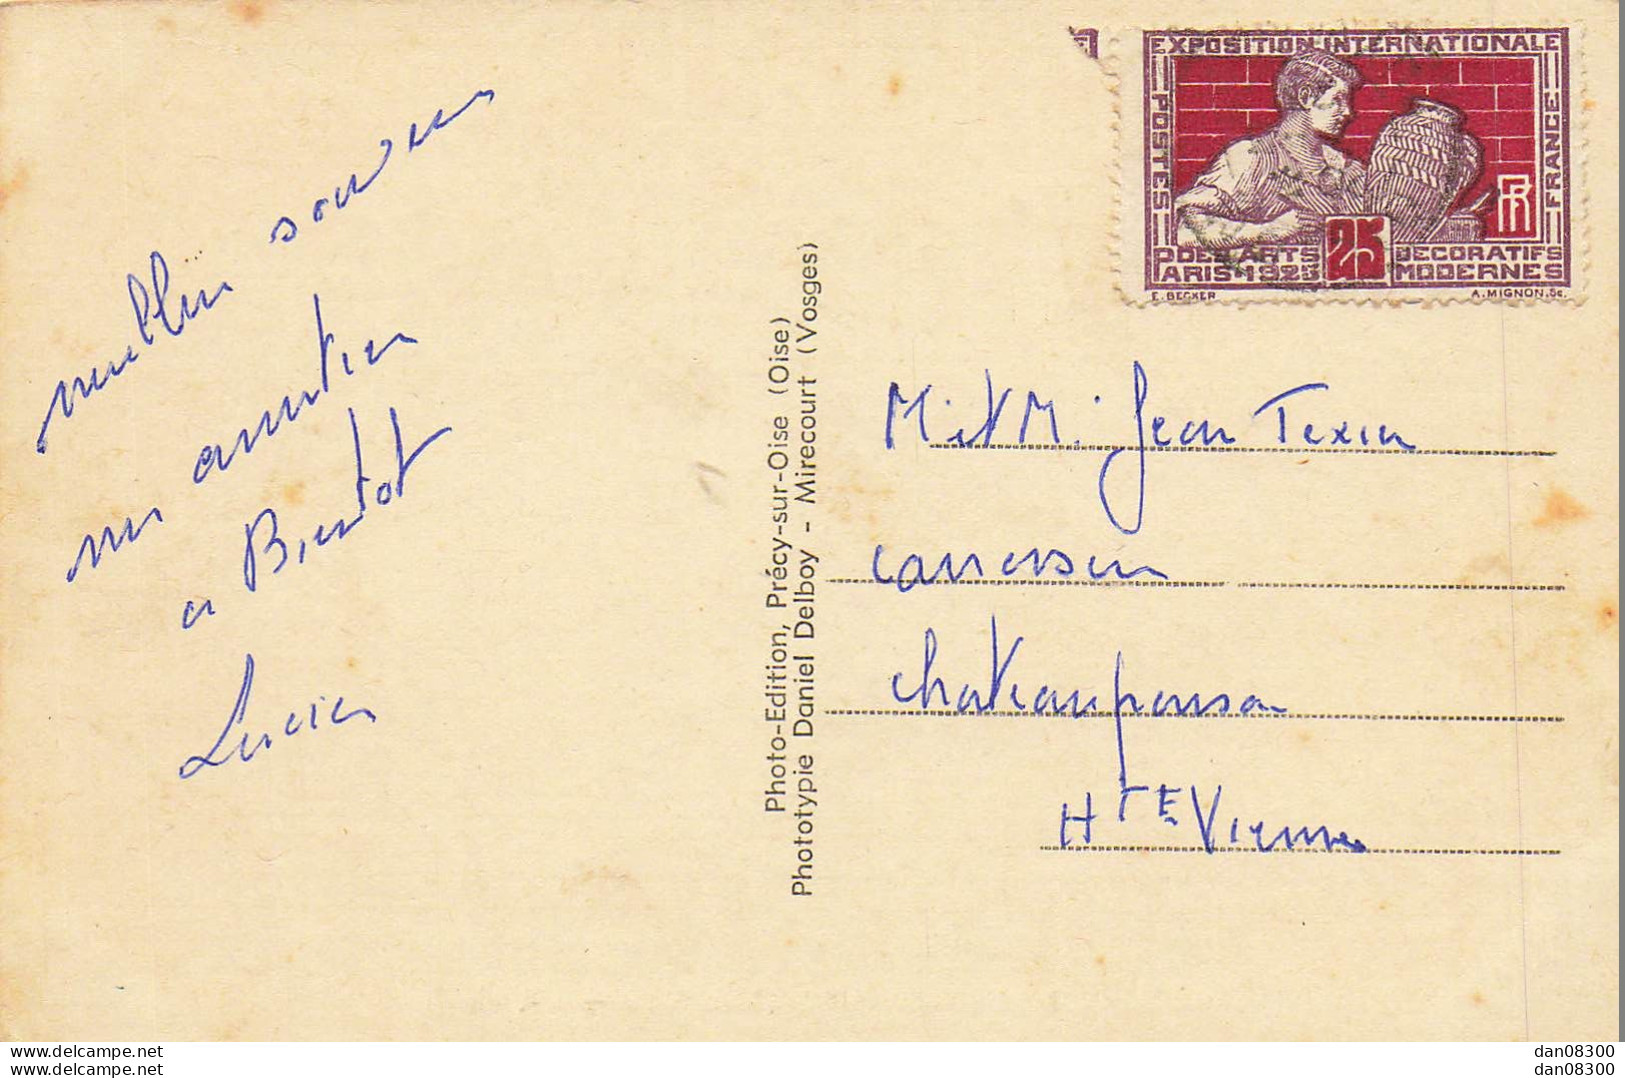 meilleur souvenir
mes amitiés
a Bientot
Lucien
Photo-Edition, Précy-sur-Oise (Oise)
Phototypie Daniel Delboy - Mirecourt (Vosges)
EXPOSITION INTERNATIONALE
POSTES
FRANCE
RF
DES ARTS
DECORATIFS
PARIS 1925
25
MODERNES
E. BECKER
A. MIGNON. Sc.
M. et M. Jean Texier
Chateauponsac
HTE Vienne
dan08300
dan08300
dan08300
dan08300